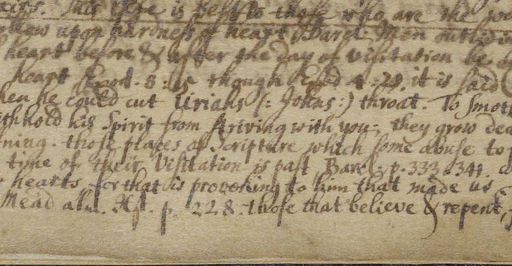 This here is kept to those who are the
upon hardness of heart. Barcl. Men outlive
heart before & after the day of visitation he
heart Exod. 8. 15 though Exod 4. 21. it is said
he could cut Uriahs (: Johns :) throat. To smot
withhold his Spirit from striving with you; they grow dea
ning. those places of Scripture which some abuse to p
tyme of their Visitation is past Barc. p. 333. 341.
hearts, for that his provoking to him that made us
Mead alm. Xst. p. 228. those that believe & repent,